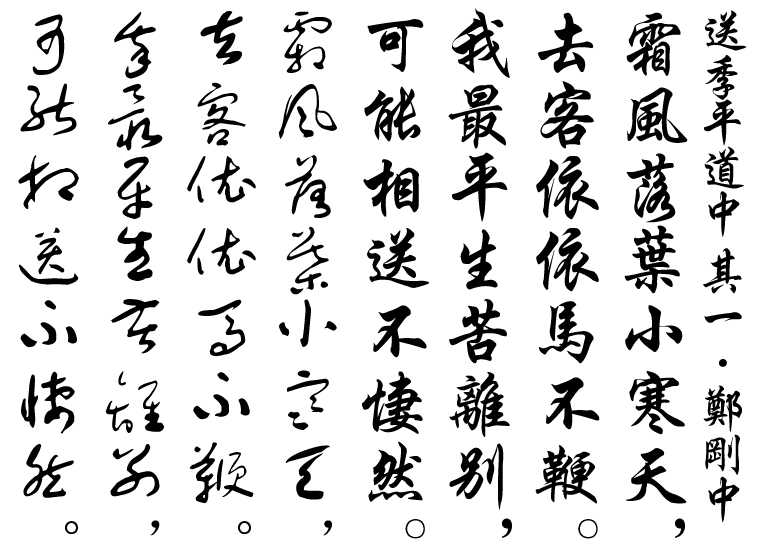 送季平道中 其一・鄭剛中
霜風落葉小寒天，
去客依依馬不鞭。
我最平生苦離別，
可能相送不悽然。
霜風落葉小寒天，
去客依依馬不鞭。
我最平生苦離別，
可能相送不悽然。